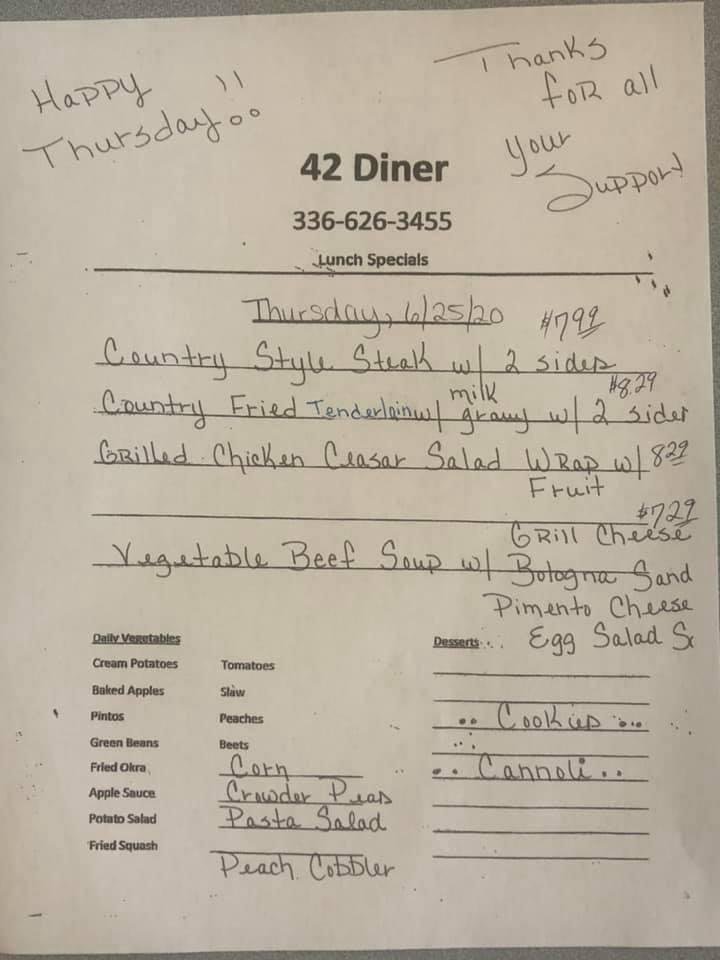 Happy
Thursday!!
Thanks
for all
your
Support
42 Diner
336-626-3455
Lunch Specials
Thursday, 6/25/20
$7.99
Country Style Steak w/ 2 sides
$8.29
Country Fried Tenderloin w/ milk gravy w/ 2 sides
Grilled Chicken Ceasar Salad Wrap w/ 8.29
Fruit
$7.29
Grill Cheese
Vegetable Beef Soup w/ Bologna Sand
Pimento Cheese
Egg Salad S
Daily Vegetables
Cream Potatoes
Baked Apples
Pintos
Green Beans
Fried Okra
Apple Sauce
Potato Salad
Fried Squash
Tomatoes
Slaw
Peaches
Beets
Corn
Crowder Peas
Pasta Salad
Peach Cobbler
Desserts
Cookies
Cannoli